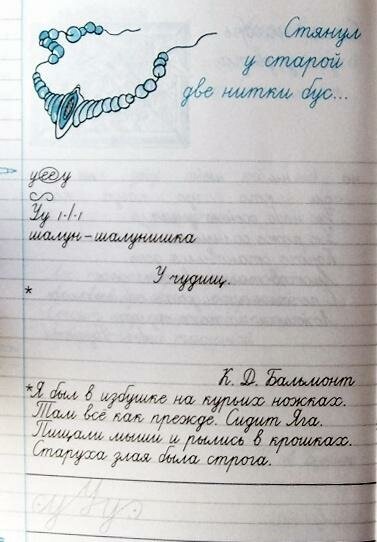 Стянул
у старой
две нитки бус...
уееу
Уу 1-1-1
шалун – шалунишка
У чудищ.
*
К. Д. Бальмонт
*Я был в избушке на курьих ножках.
Там всё как прежде. Сидит Яга.
Пищали мыши и рылись в крошках.
Старуха злая была строга.
уУу